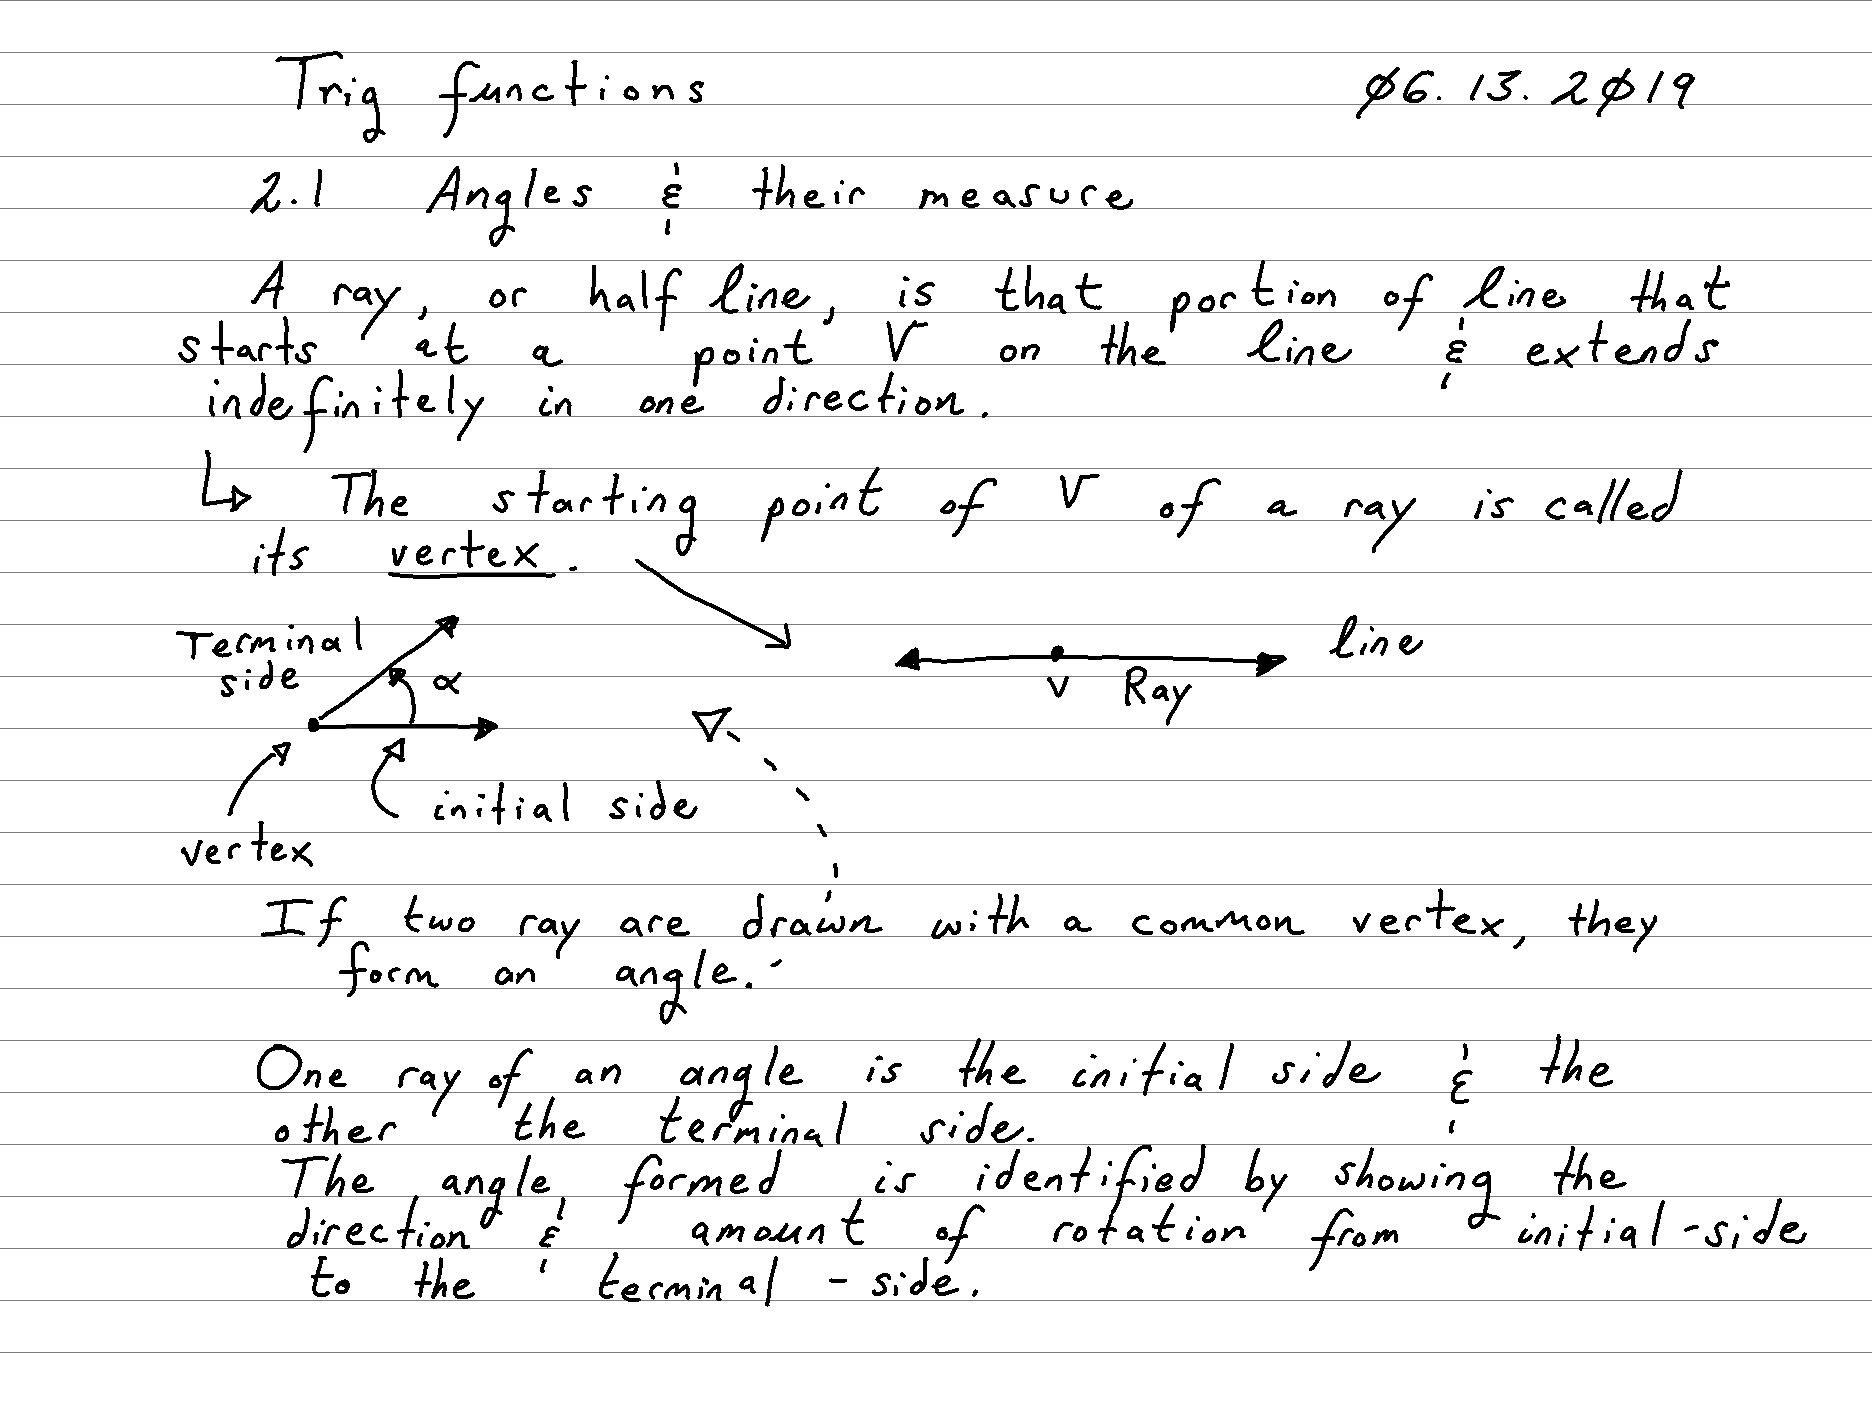 Trig functions 06.13.2019
2.1 Angles & their measure
A ray, or half line, is that portion of line that
starts at a point V on the line & extends
indefinitely in one direction.
↳ The starting point of V of a ray is called
its vertex.
Terminal
side
α
line
V Ray
initial side
vertex
If two ray are drawn with a common vertex, they
form an angle.
One ray of an angle is the initial side & the
other the terminal side.
The angle formed is identified by showing the
direction & amount of rotation from initial-side
to the terminal - side.